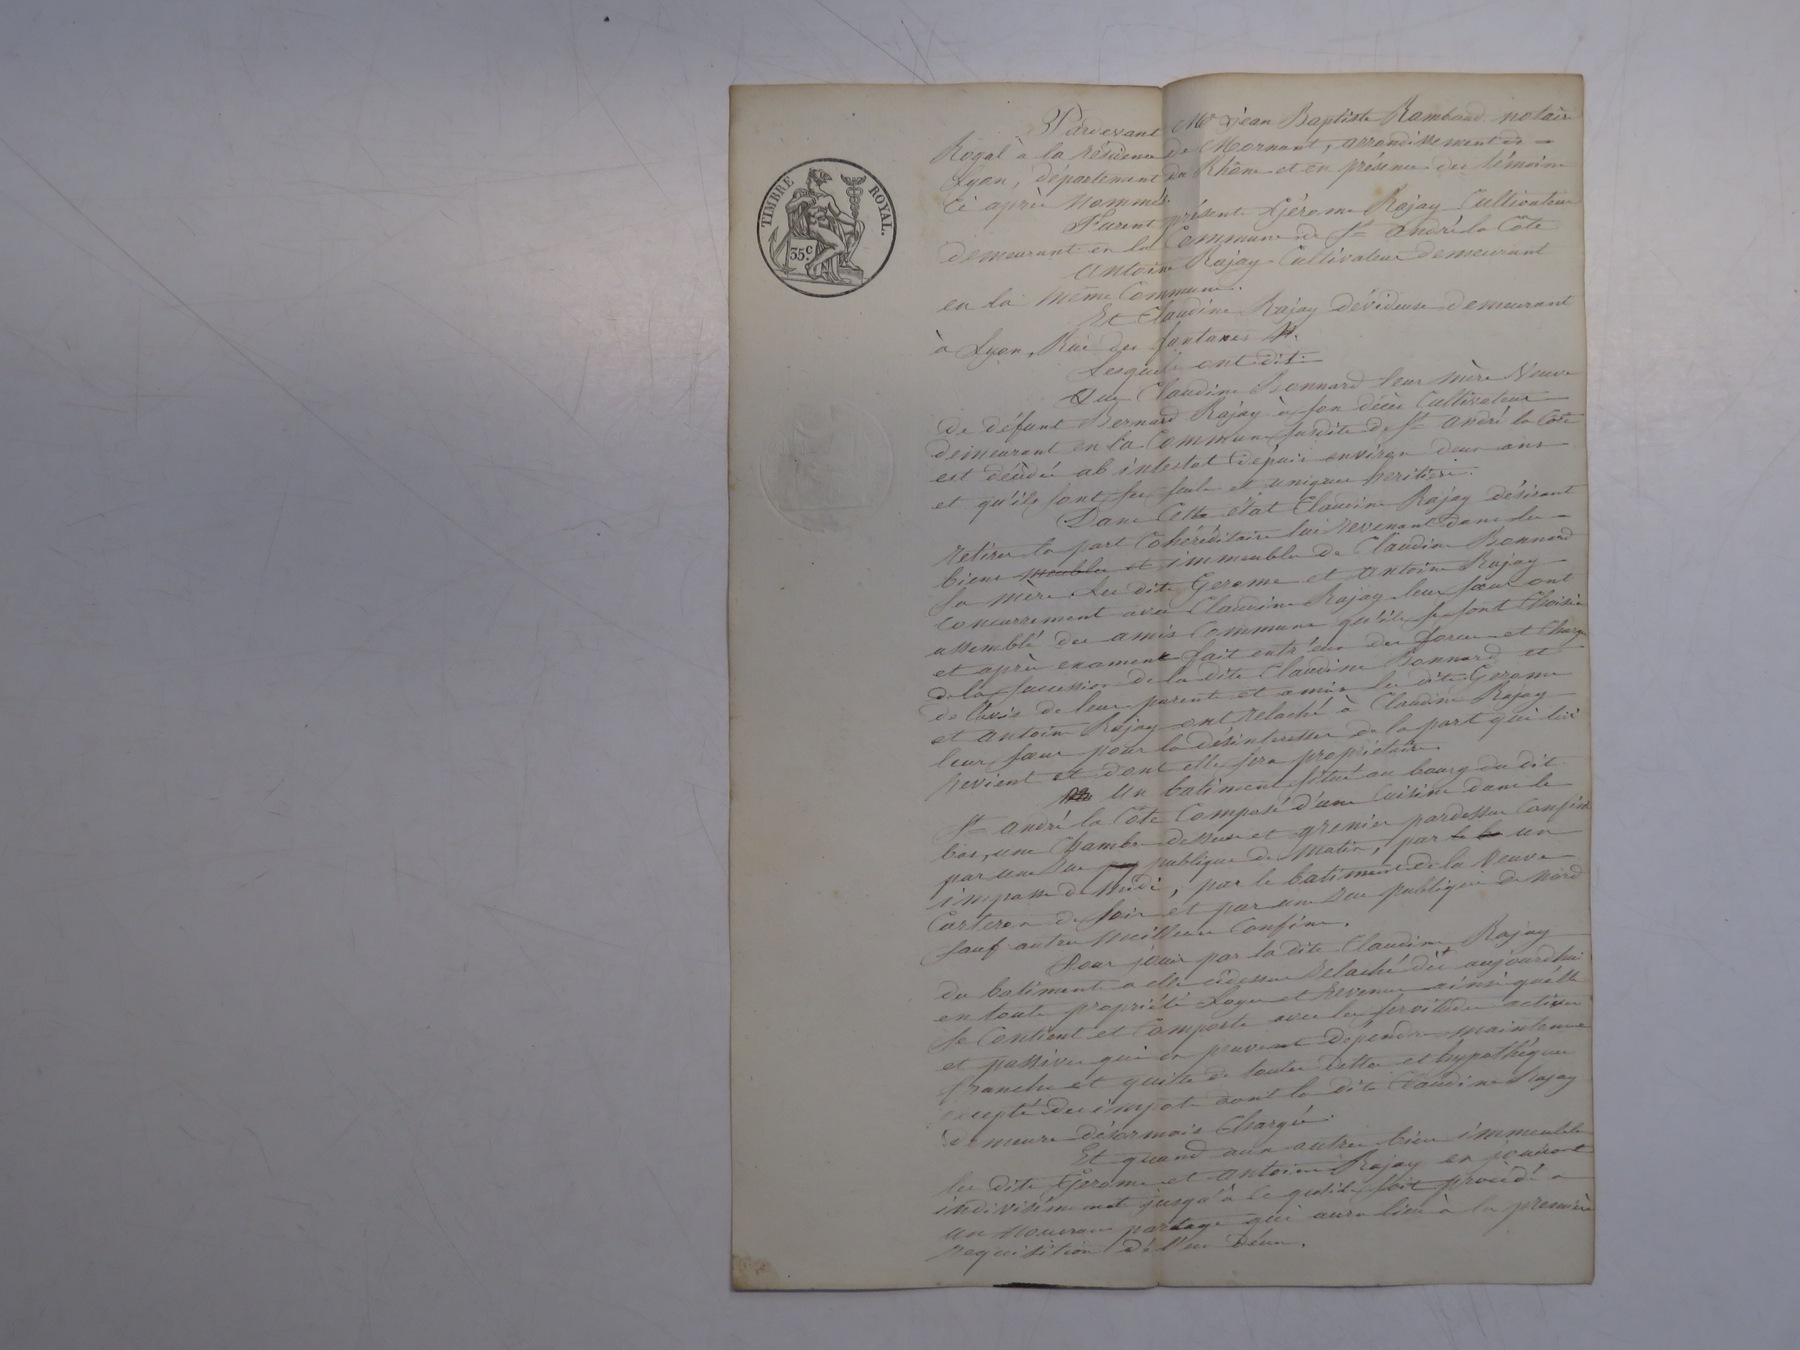 TIMBRE ROYAL.
35 c.
Pardevant Me Jean Baptiste Rambaud notaire
Royal à la résidence de Mornant, arrondissement de
Lyon, département du Rhône et en présence des témoins
ci après nommés.
Furent présents Gérome Rajay Cultivateur
demeurant en la Commune de St André la Côte
Antoine Rajay Cultivateur demeurant
en la même Commune.
Et Claudine Rajay dévideuse demeurant
à Lyon, Rue des fontanes
Lesquels ont dit
Que Claudine Bonnard leur mère Veuve
de défunt Bernard Rajay à son décès Cultivateur
demeurant en la Commune susdite de St André la Côte
est décédée ab intestat depuis environ deux ans
et qu'ils sont ses seuls et uniques héritiers.
Dans cette état Claudine Rajay désirant
retirer la part Cohéréditaire lui revenant dans les
biens meubles et immeubles de Claudine Bonnard
sa mère les dits Gerome et Antoine Rajay
concurremment avec Claudine Rajay leur sœur ont
assemblé des amis Communs qu'ils se sont Choisis
et après examen fait entr'eux des forces et Charges
de la succession de la dite Claudine Bonnard et
de l'avis de leurs parents et amis les dits Gerome
et Antoine Rajay ont relaché à Claudine Rajay
leur sœur pour la désintéresser de la part qui lui
revient et dont elle sera propriétaire
Un batiment situé au bourg du dit
St André la Côte Composé d'une Cuisine dans le
bas, une Chambre dessus et grenier pardessus Confiné
par une rue publique de matin, par un
impasse de midi, par le batiment de la Veuve
Carteron de soir et par une rue publique de nord
sauf autres meilleurs Confins.
Pour jouir par la dite Claudine Rajay
du batiment a elle cidessus relaché dès aujourdhui
en toute propriété loyers et revenus ainsi quelle
se Contient et Comporte avec les servitudes actives
et passives qui en peuvent dépendre maintenue
franche et quitte de toutes dettes et hypothèques
excepté des impots dont la dite Claudine Rajay
demeure désormais Chargée.
Et quand aux autres biens immeubles
les dits Gerome et Antoine Rajay en jouiront
indivisément jusqu'à ce qu'il soit procédé a
un nouveau partage qui aura lieu à la première
requisition de l'un deux.